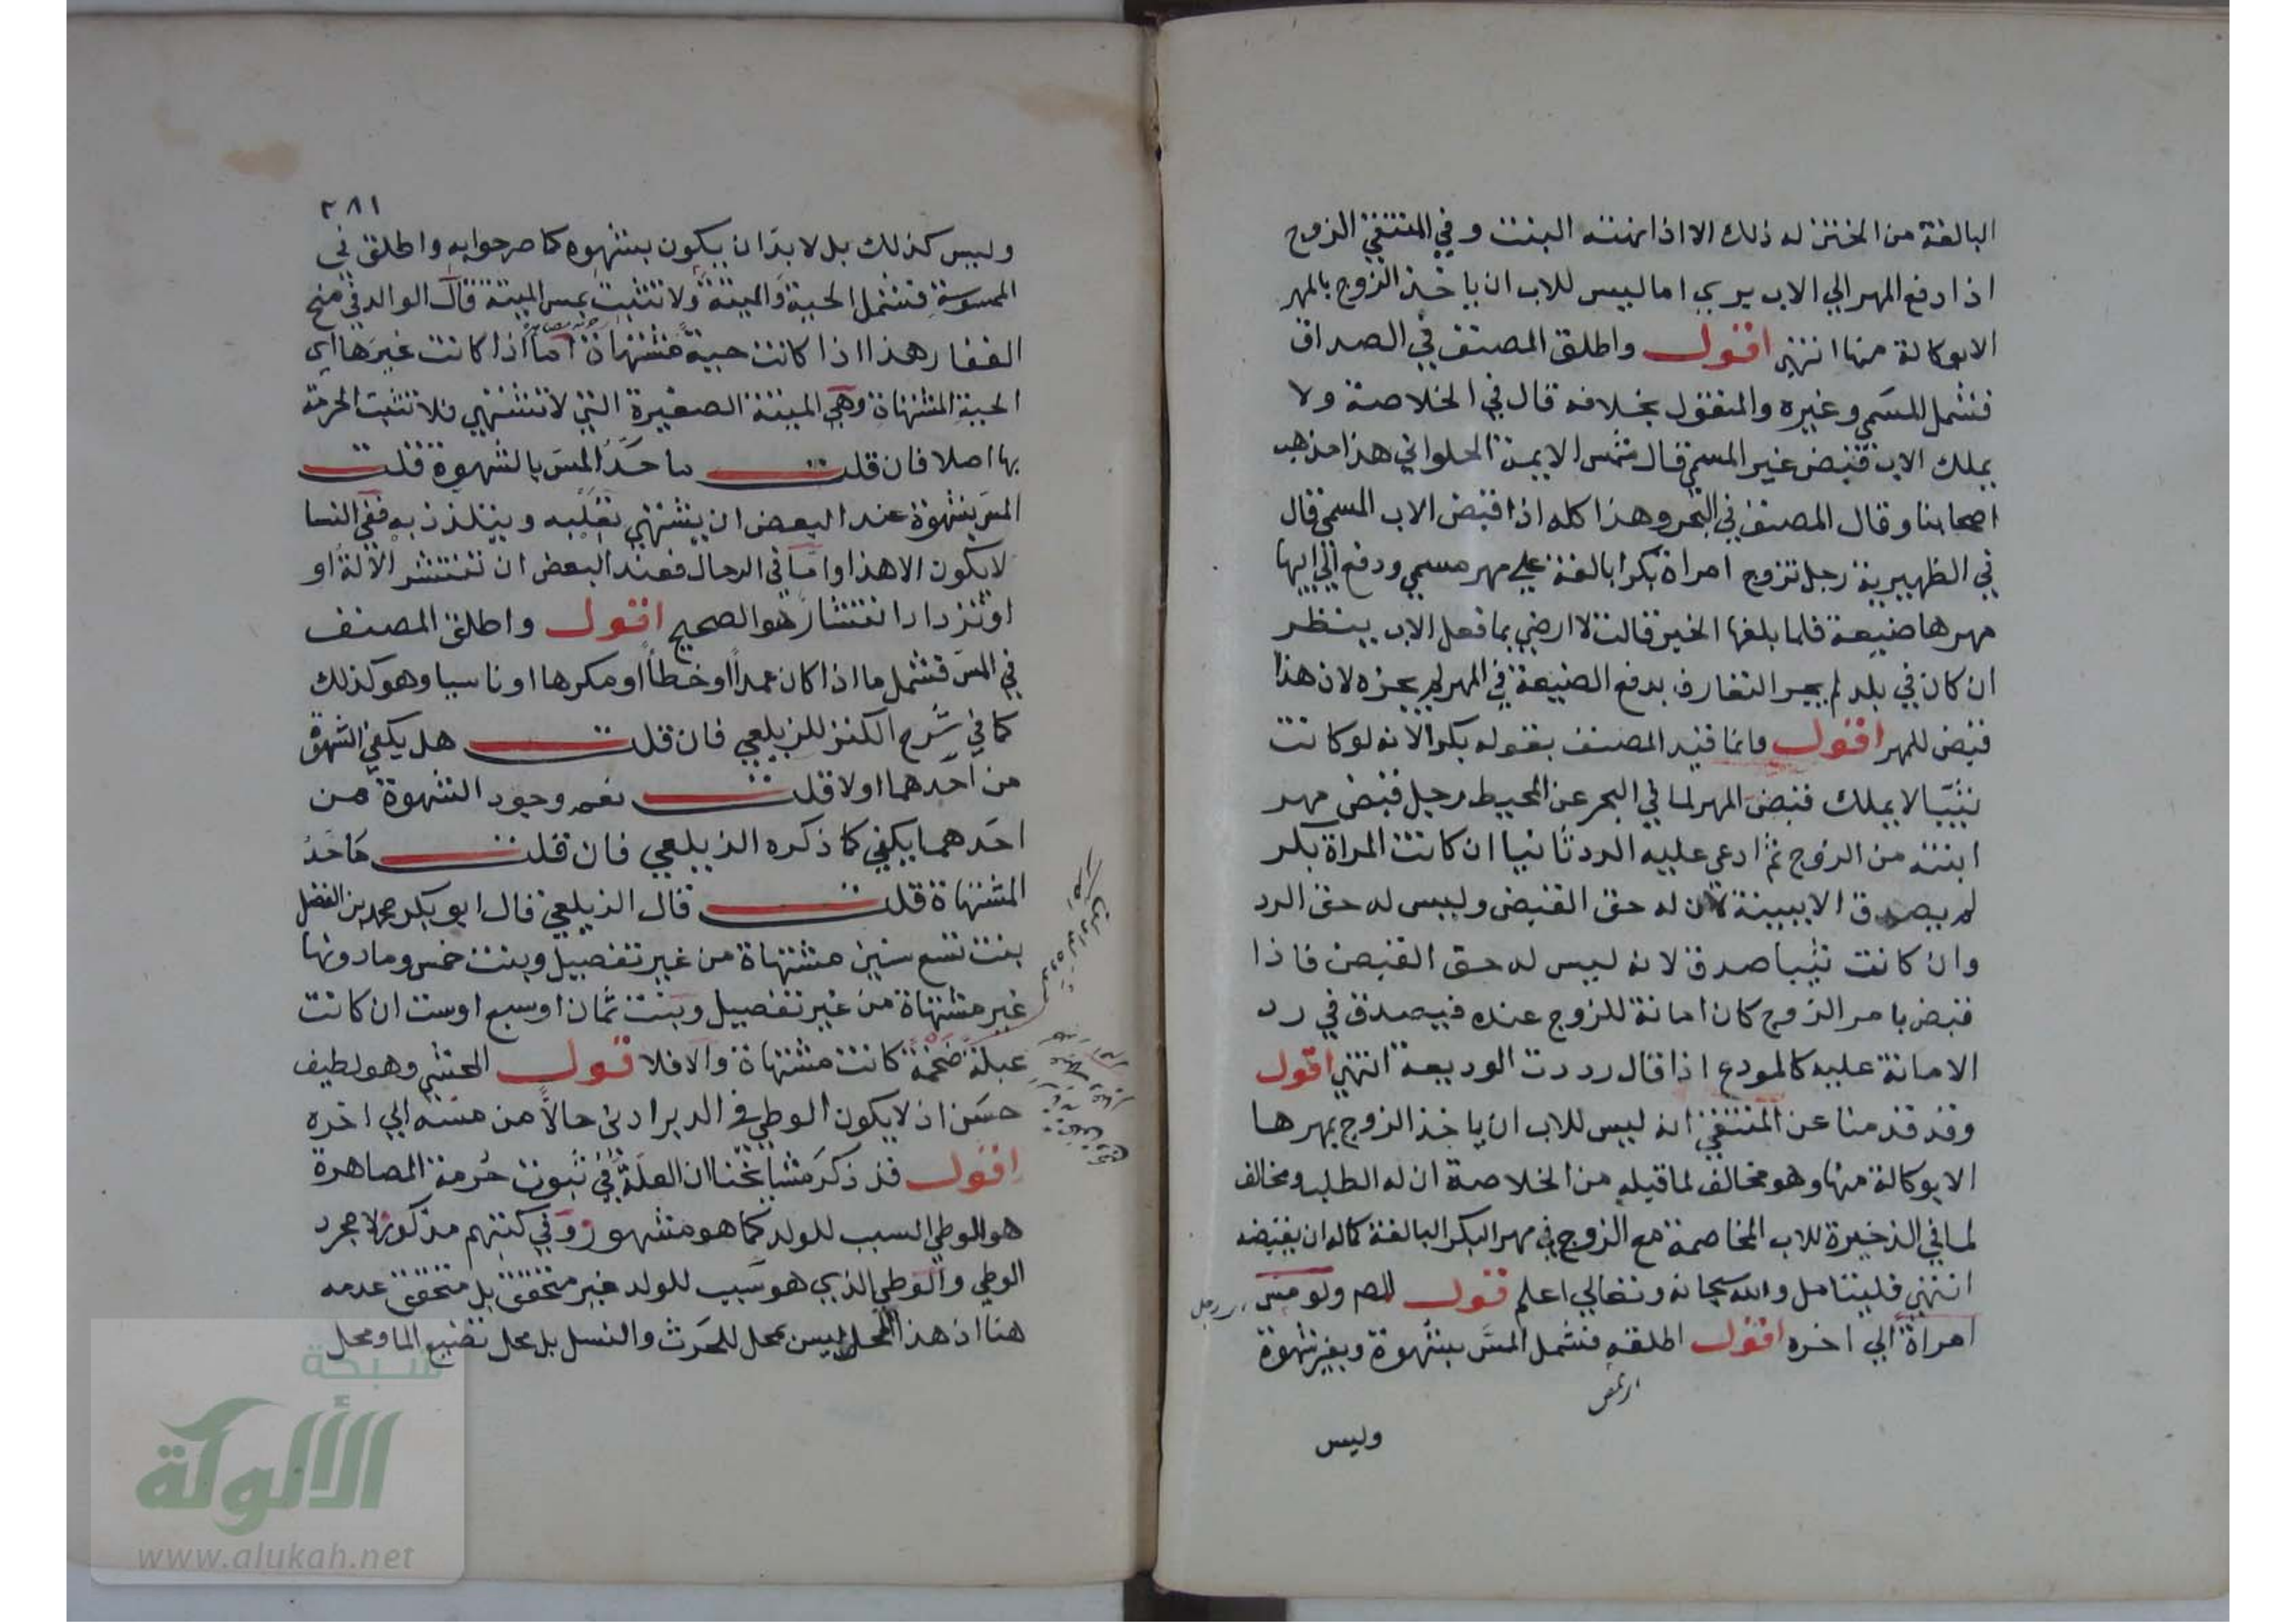 البالغة من الختن له ذلك الا اذا نهته البنت وفي المنتقي الزوج
اذا دفع المهر الي الاب يبري اما ليس للاب ان ياخذ الزوج بالمهر
الا بوكالة منها انتهي اقول واطلق المصنف في الصداق
فشمل المسمي وغيره والمنقول بخلافه قال في الخلاصة ولا
يملك الاب قبض غير المسمي قال شمس الايمة الحلواني هذا مذهب
اصحابنا وقال المصنف في البحر وهذا كله اذا قبض الاب المسمي قال
في الظهيرية رجل تزوج امراة بكرا بالغة علي مهر مسمي ودفع الي ابيها
مهرها ضيعة فلما بلغها الخبر قالت لا ارضي بما فعل الاب ينظر
ان كان في بلد لم يجر التعارف بدفع الضيعة في المهر لم يجزه لان هذا
قبض للمهر اقول وانما قيد المصنف بقوله بكرا لانه لو كانت
ثيبا لا يملك قبض المهر لما في البحر عن المحيط رجل قبض مهر
ابنته من الزوج ثم ادعي عليه الرد ثانيا ان كانت المراة بكر
لم يصدق الا ببينة لان له حق القبض وليس له حق الرد
وان كانت ثيبا صدق لانه ليس له حق القبض فاذا
قبض بامر الزوج كان امانة للزوج عنده فيصدق في رد
الامانة عليه كالمودع اذا قال رددت الوديعة انتهي اقول
وقد قدمنا عن المنتقي انه ليس للاب ان ياخذ الزوج بمهرها
الا بوكالة منها وهو مخالف لما قبله من الخلاصة ان له الطلب ومخالف
لما في الذخيرة للاب المخاصمة مع الزوج في مهر البكر البالغة كما له ان يقبضه
انتهي فليتامل والله سبحانه وتعالي اعلم قول المص ولو مس
امراة الي اخره اقول اطلقه فشمل المس بشهوة وبغير شهوة
وليس
٢٨١
وليس كذلك بل لا بد ان يكون بشهوه كما صرحوا به واطلق في
الممسوسة فشمل الحية والميتة ولا تثبت بمس الميتة قال الوالد في منح
الغفار هذا اذا كانت حية مشتهاة اما اذا كانت غيرها اي
الحية المشتهاة وهي الميتة الصغيرة التي لا تشتهي فلا تثبت الحرمة
بها اصلا فان قلت ما حد المس بالشهوة قلت
المس بشهوة عند البعض ان يشتهي بقلبه ويتلذذ به ففي النسا
لا يكون الا هذا واما في الرجال فعند البعض ان تنتشر الالة او
او تزداد انتشارا هو الصحيح اقول واطلق المصنف
في المس فشمل ما اذا كان عمدا او خطأ او مكرها او ناسيا وهو كذلك
كما في شرح الكنز للزيلعي فان قلت هل يكفي الشهوة
من احدهما او لا قلت نعم وجود الشهوة من
احدهما يكفي كما ذكره الزيلعي فان قلت ما حد
المشتهاة قلت قال الزيلعي قال ابو بكر محمد بن الفضل
بنت تسع سنين مشتهاة من غير تفصيل وبنت خمس وما دونها
غير مشتهاة من غير تفصيل وبنت ثمان او سبع او ست ان كانت
عبلة ضخمة كانت مشتهاة والا فلا قول المحشي وهو لطيف
حسن اذ لا يكون الوطي في الدبر ادني حالا من مسه الي اخره
اقول قد ذكر مشايخنا ان العلة في ثبوت حرمة المصاهرة
هو الوطي السبب للولد كما هو مشهور وفي كتبهم مذكور لا مجرد
الوطي والوطي الذي هو سبب للولد غير متحقق بل متحقق عدمه
هنا اذ هذا المحل ليس محل للحرث والنسل بل محل تضييع الما ومحل
شبكة
الألوكة
www.alukah.net